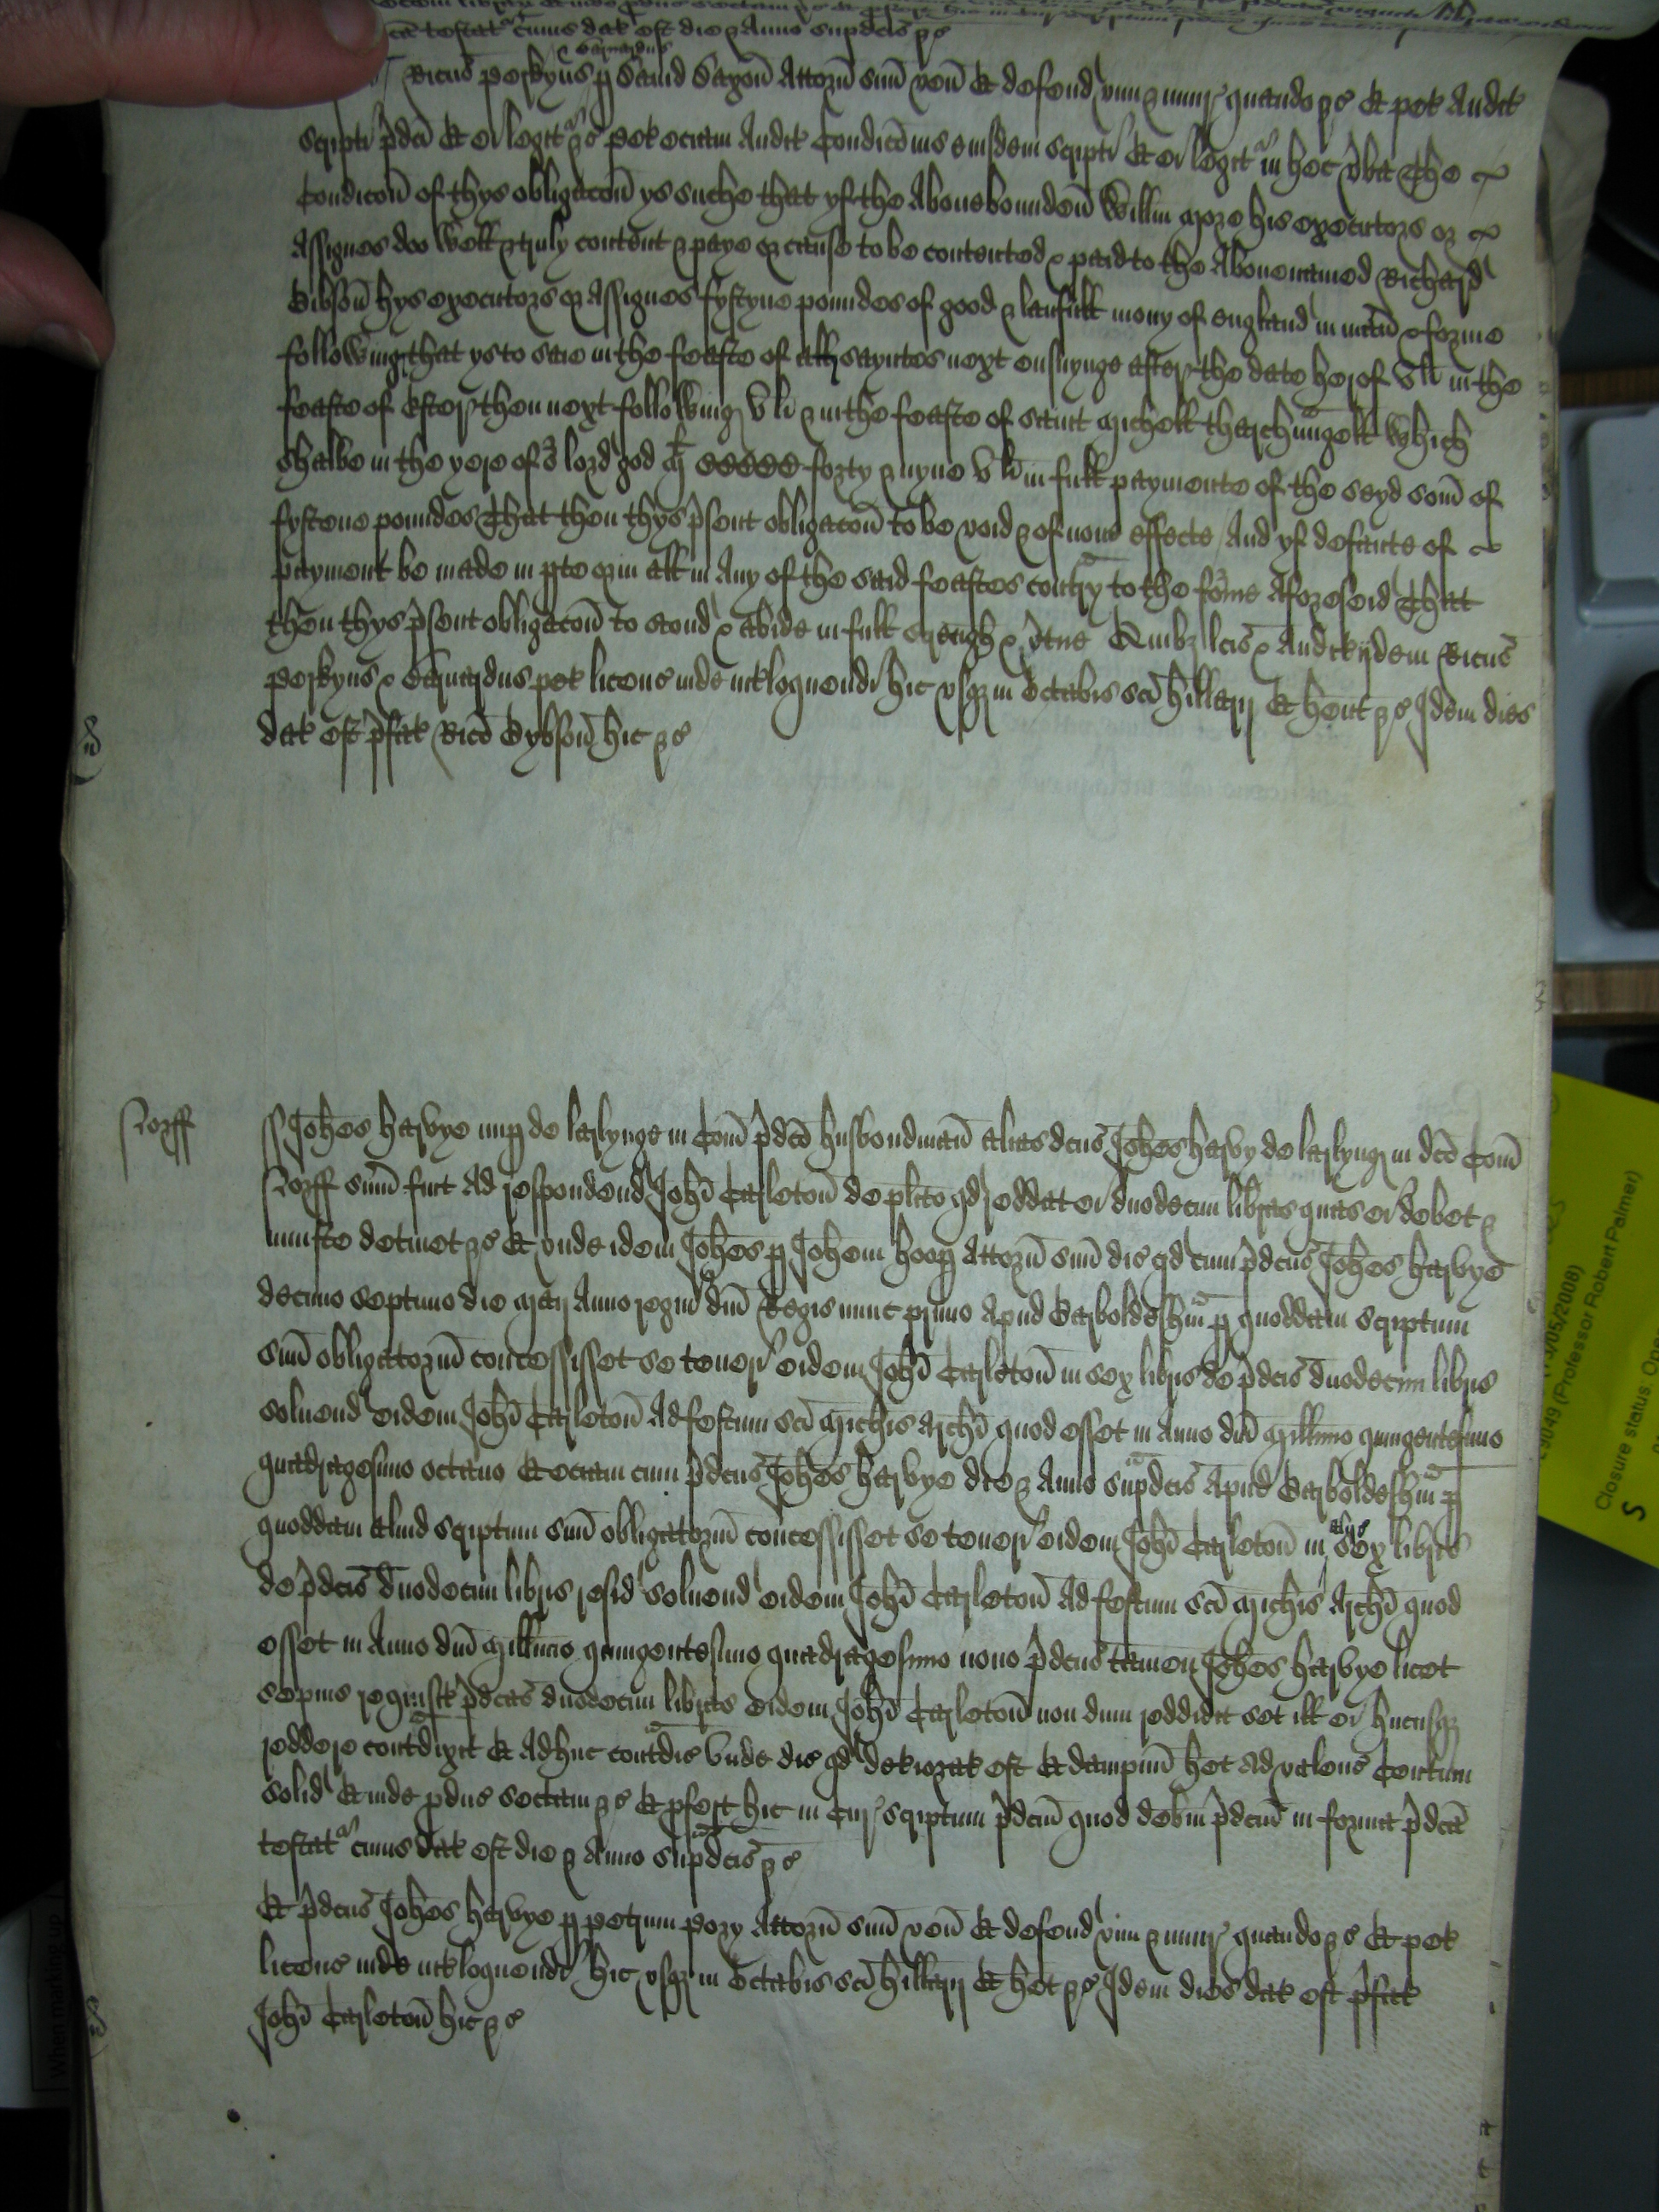 testat' cuius dat est die & Anno supdcis &c
& Barnardus
Ricus Perkyns p David Saxon Attorn suu ven Et defend vim & iniur' quando &c Et pet Audit
scripti pdci Et ei legit' &c pet eciam Audit Condicois eiusdem scripti Et ei legit' in hec vba The
Condicon of thys obligacon ys suche that yf the Abouebounden Willm More his executors or
Assignes doo well & truly content & paye or cause to be contented & paid to the Abouenamed Richard
Gibson hys executors or Assignes fyftyne poundes of good & laufull mony of england in man & forme
following that ys to saie in the feaste of all sayntes next ensuynge after the date herof v li in the
feaste of Ester then next following v li & in the feaste of saint Michell tharchangell which
shalbe in the yere of or lord god M CCCCC forty & nyne v li in full paymente of the seyd som of
fyftene poundes That then thys psent obligacon to be void & of none effecte And yf defaute of
payment be made in pte or in all in Any of the said feastes contry to the forme Aforeseid That
then thys psent obligacon to stond & abide in full strength & vtue Quibz lcis & Audit ijdem Ricus
Perkyns & Barnardus pet licenc inde int loquendi hic vsqz in Octabis sci hillarij Et hent &c Idem dies
dat est pfat Rico Gybson hic &c
Norff
ss Johes Harvye nup de Larlynge in Com pdco husbondman alias dcus Johes Harvy de Larlyng in dco Com
Norff sum fuit Ad respondend Johi Carleton de plito qd reddat ei duodecim libras quas ei debet &
iniuste detinet &c Et vnde idem Johes p Johem Hoop Attorn suu dic qd cum pdcus Johes Harvye
decimo septimo die Maij Anno regni dni Regis nunc primo Apud Garboldesham p quoddam scriptum
suu obligatoriu concessisset se teneri eidem Johi Carleton in sex libris de pdcis duodecim libris
soluend eidem Johi Carleton Ad festum sci Michis Archi quod esset in Anno dni Millimo quingentesimo
quadragesimo octauo Et eciam cum pdcus Johes Harvye die & Anno supdcis Apud Garboldesham p
quoddam aliud scriptum suu obligatoriu concessisset se teneri eidem Johi Carleton in alijs sex libris
de pdcis duodecim libris resid soluend eidem Johi Carleton Ad festum sci Michis Archi quod
esset in Anno dni Millimo quingentesimo quadragesimo nono pdcus tamen Johes Harvye licet
sepius requisit pdcas duodecim libras eidem Johi Carleton non dum reddidit set ill ei hucusqz
reddere contradixit Et Adhuc contradic Vnde dic qd deteriorat est Et dampnu het Ad valenc Centum
solid Et inde pduc sectam &c Et pfert hic in Cur' scriptum pdcm quod debm pdcm in forma pdca
testat' cuius dat est die & Anno supdcis &c
Et pdcus Johes Harvye p Petrum Pory Attorn suu ven Et defend vim & iniur' quando &c Et pet
licenc inde int loquendi hic vsqz in Octabis sci hillarij Et het &c Idem dies dat est pfat
Johi Carleton hic &c
(Professor Robert Palmer)
Closure status: Open
When marking up